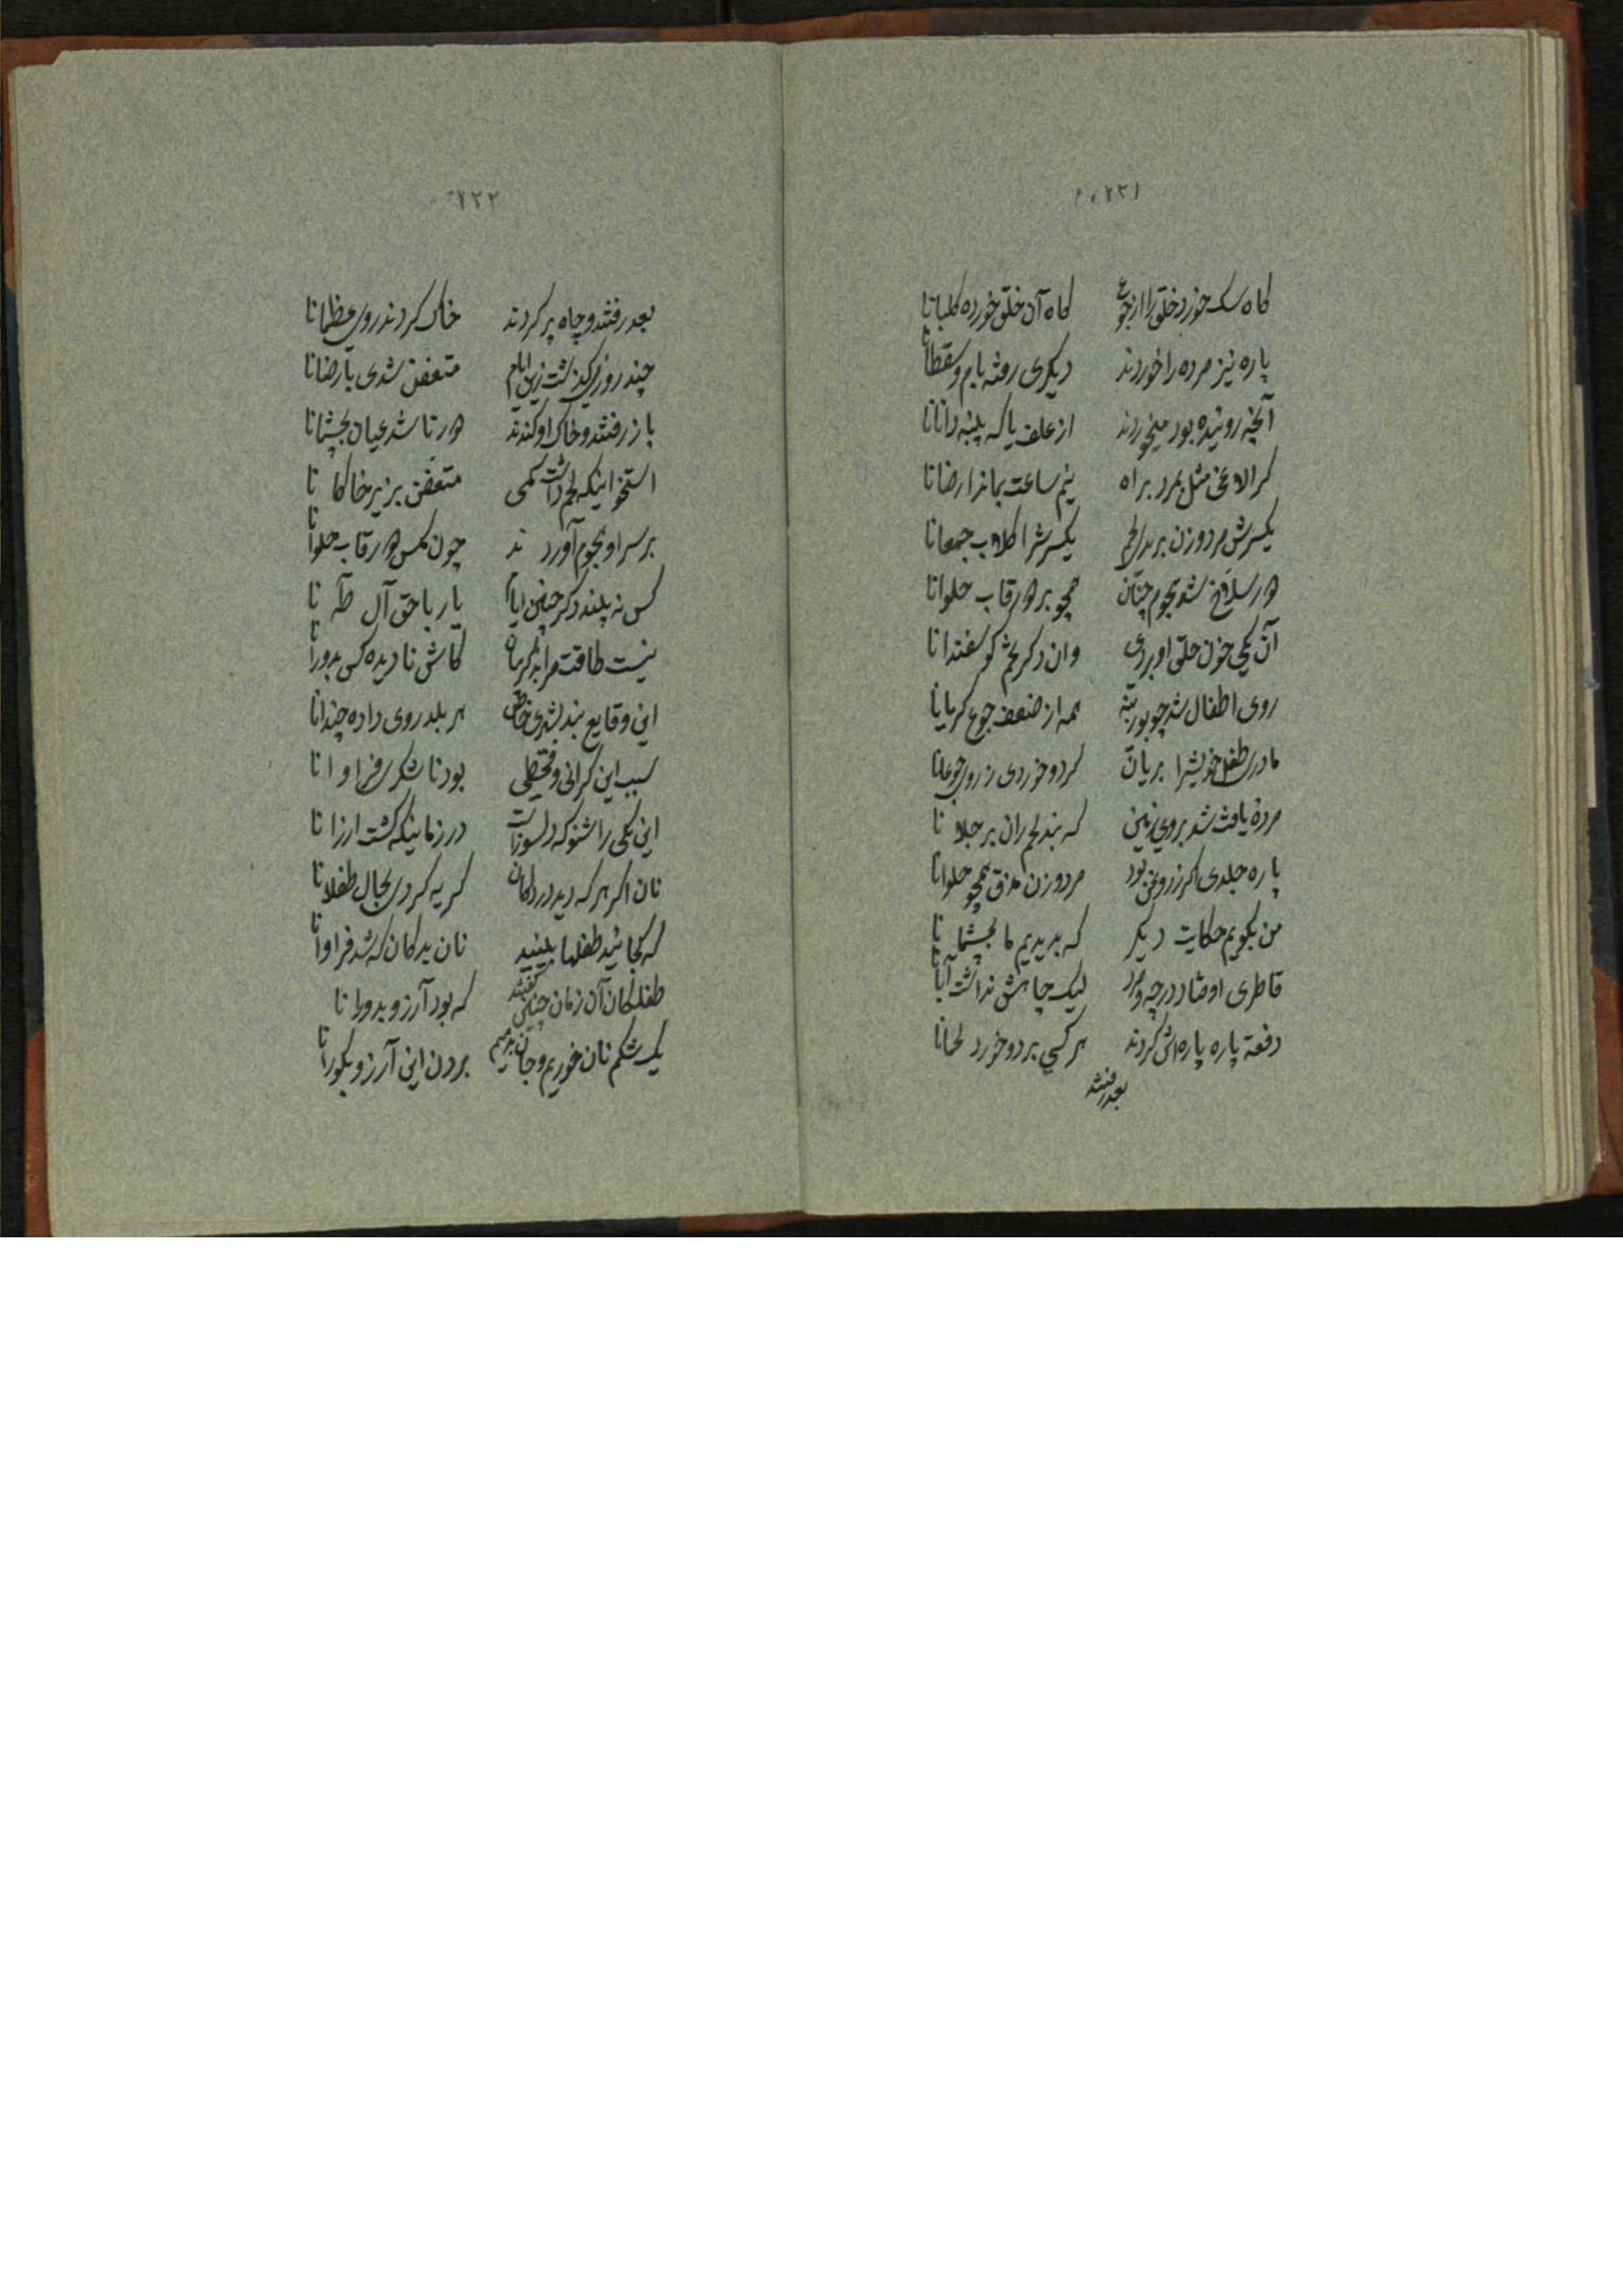 ۲۲۱
کاه سک خورد خلق را از جوع کاه آن خلق خورده کلبانا
پاره نیز مرده را خوردند دیکری رفته بام و سقطانا
آنچه روئیده بود میخوردند از علف یا که پنبه دانانا
کر الاغی مثل بمرد براه نیم ساعت نماند ارضانا
یکسرش مرد و زن برید لحم یکسرش را کلاب جمعانا
در سلاخ شد هجوم چنان همچو بر در قاب حلوانا
آن یکی خون حلق او بردی وان دکر لحم کوسفندانا
روی اطفال شد چو بوزینه همه از ضعف جوع کریانا
مادری طفل خویشرا بریان کرد و خوردی ز روی جوعانا
مرده یافت شد بروی زمین که بند لحم ران بر جلانا
پاره جلدی اکر ز روغن بود مرد و زن مذق همچو حلوانا
من بکویم حکایت دیکر که بدیدیم ما بچشمانا
قاطری اوفتاد در چه و مرد لیک چاهش نداشت آبانا
دفعة پاره پاره‌اش کردند هر کسی برد و خورد لحمانا
بعد رفتند
۲۲۲
بعد رفتند و چاه پر کردند خاک کردند روی عظمانا
چند روزی کذشت زین ایام متعفن شدی بارضانا
باز رفتند و خاک او کندند در تا شد عیان بچشمانا
استخوانیکه لحم داشت کمی متعفن بزیر خاکانا
بر سر او هجوم آوردند چون مکس در قاب حلوانا
کس نه بیند دکر چنین ایام یا رب با حق آل طه نا
نیست طاقت مرا بذکر ماه کاش نادیده کس بدورانا
این وقایع بند بشهری خاص هر بلد روی داده چندانا
سبب این کرانی و قحطی بود ناشکری فراوانا
این یکی را شنو که دلسوز است در زمانیکه کشت ارزانا
نان اکر هر که دید در دکان کریه کردی بحال طفلانا
که کجائید طفلها ببینید نان بدکان که شد فراوانا
طفلکان آن زمان چنین کفتند که بود آرزو بدورانا
یک شکم نان خوریم و جان بدهیم بردن این آرزو بکورانا